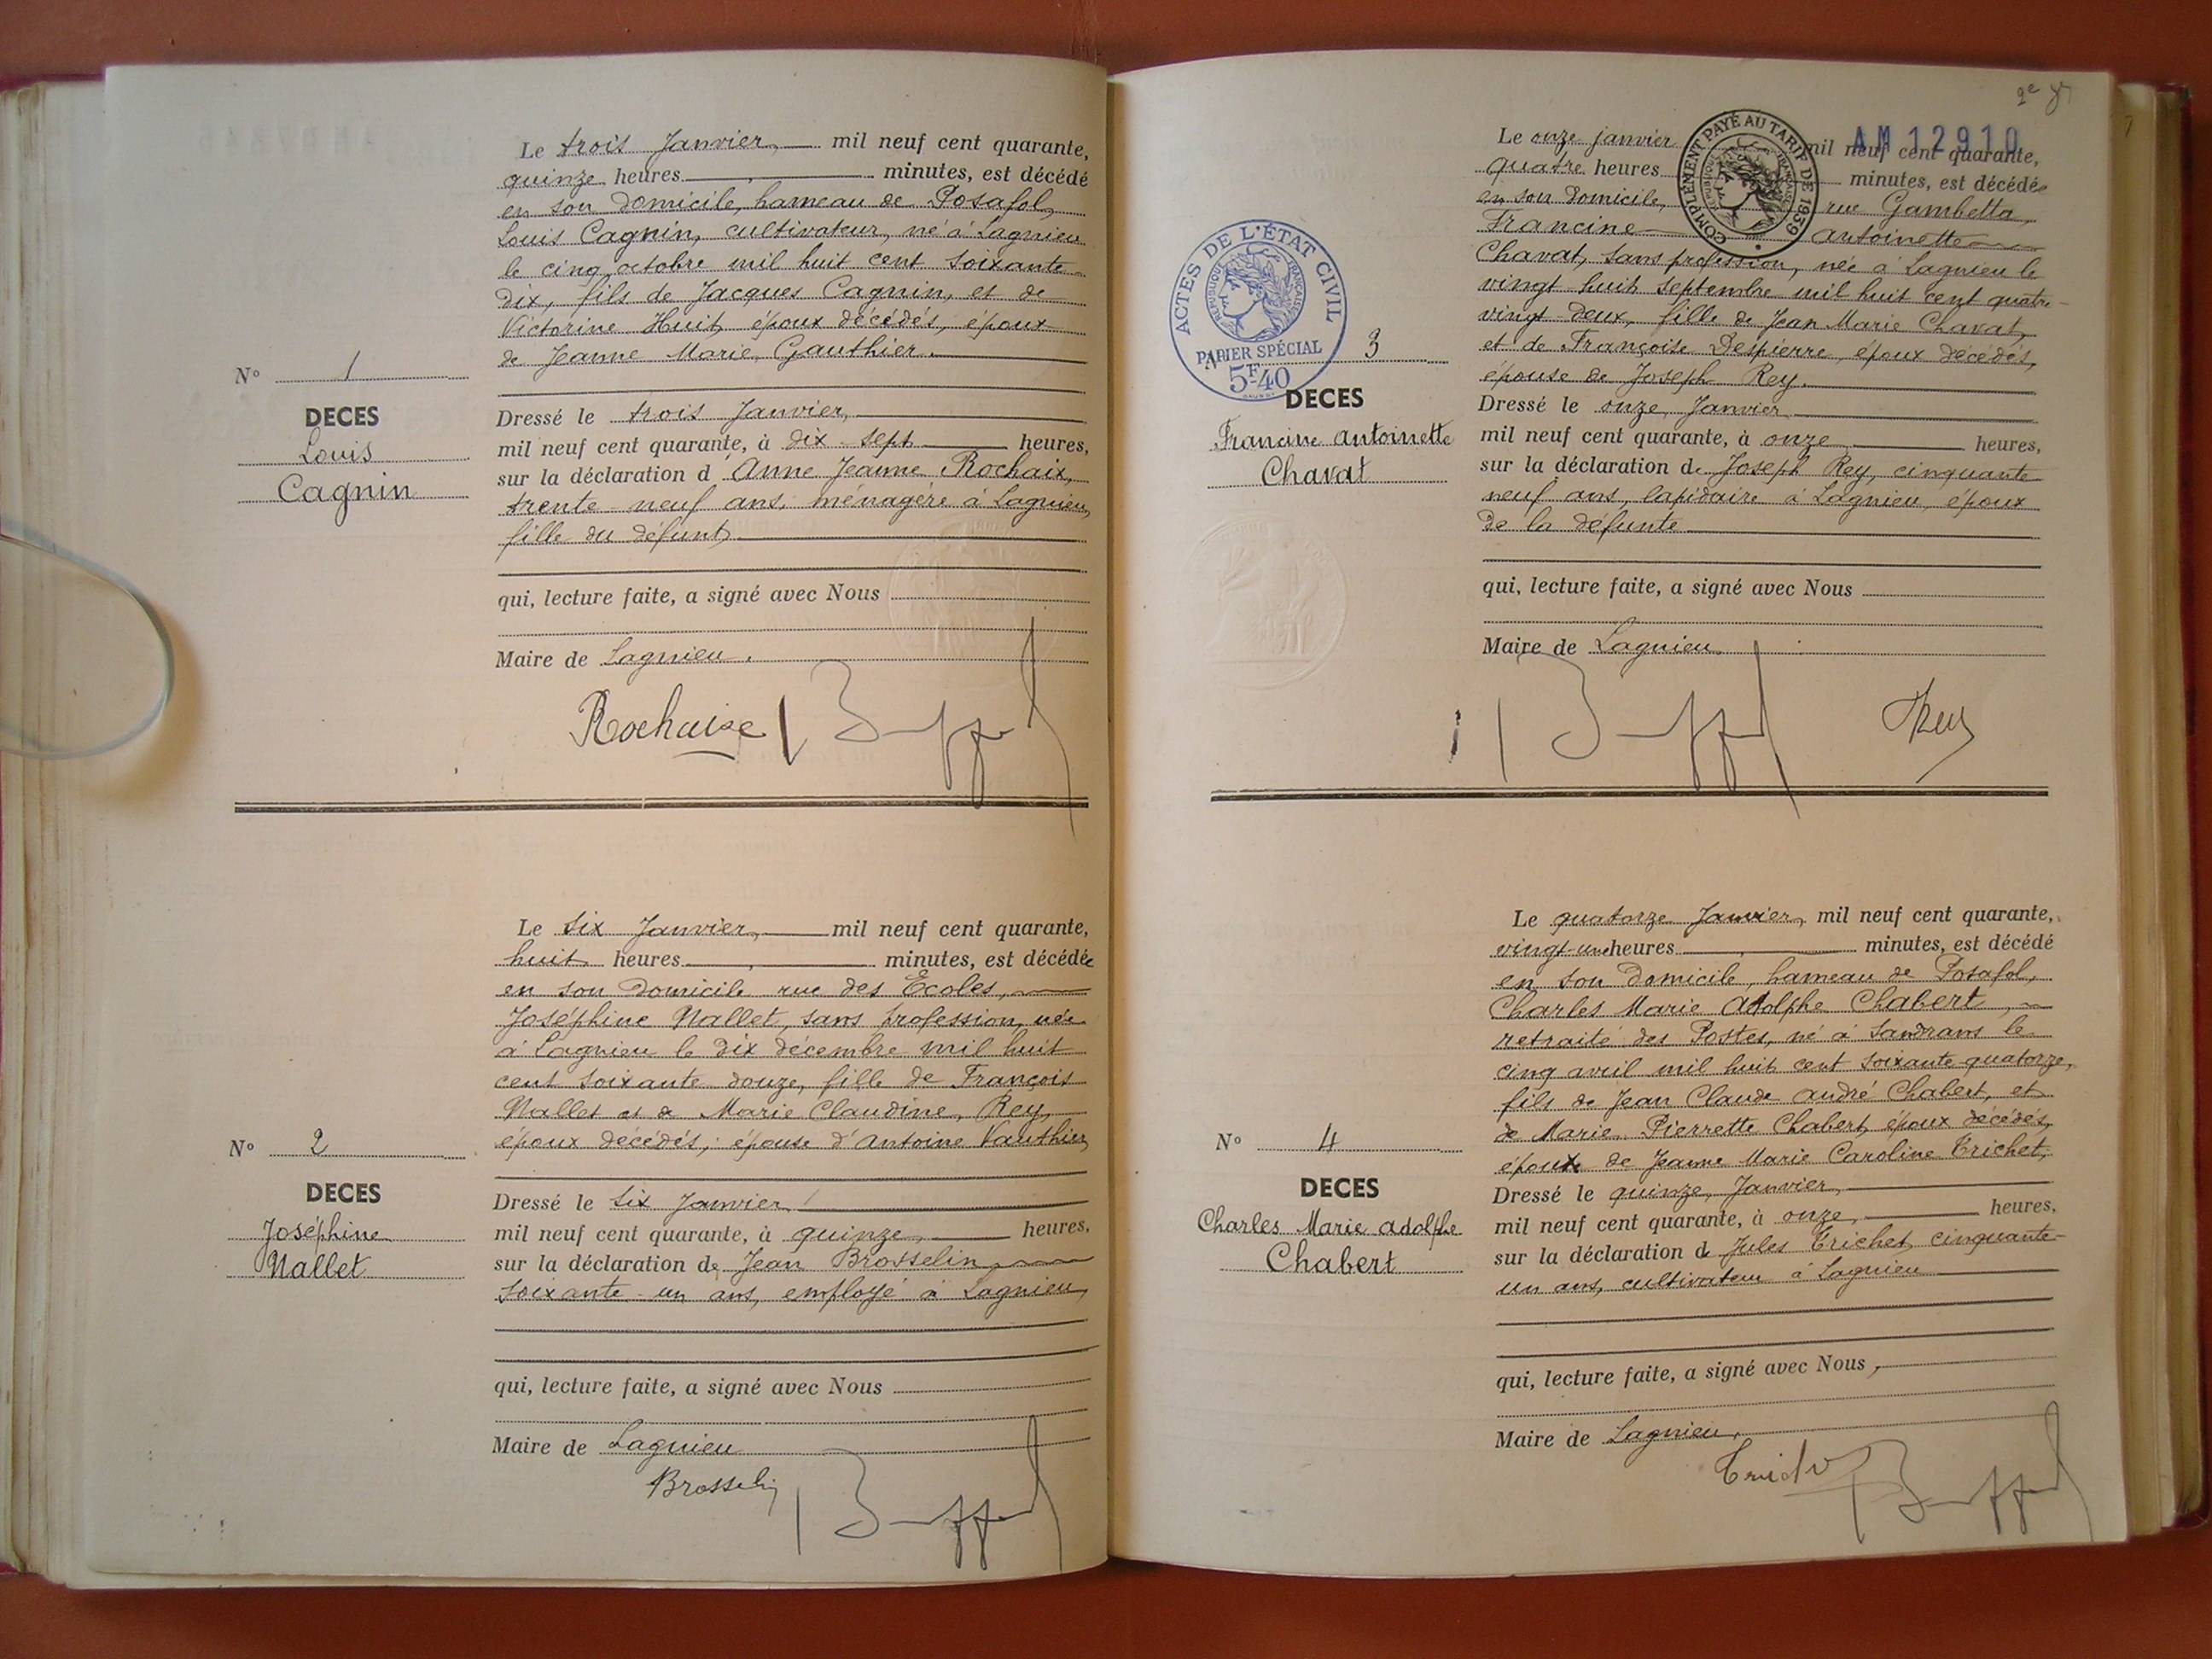 Le trois Janvier, mil neuf cent quarante,
quinze heures minutes, est décédé
en son domicile, hameau de Posafol,
Louis Cagnin, cultivateur, né à Lagnieu
le cinq octobre mil huit cent soixante
dix, fils de Jacques Cagnin, et de
Victorine Huit, époux décédés, époux
de Jeanne Marie Gauthier.
N° 1
DECES
Louis
Cagnin
Dressé le trois Janvier,
mil neuf cent quarante, à dix-sept heures,
sur la déclaration d'Anne Jeanne Rochaix,
trente-neuf ans, ménagère à Lagnieu,
fille du défunt,
qui, lecture faite, a signé avec Nous
Maire de Lagnieu.
Rochaise
Le six Janvier, mil neuf cent quarante,
huit heures minutes, est décédée
en son domicile rue des Ecoles,
Joséphine Nallet, sans profession, née
à Lagnieu le dix décembre mil huit
cent soixante douze, fille de François
Nallet et de Marie Claudine Rey,
époux décédés, épouse d'Antoine Vauthier,
N° 2
DECES
Joséphine
Nallet
Dressé le six Janvier,
mil neuf cent quarante, à quinze, heures,
sur la déclaration de Jean Brosselin,
soixante-un ans, employé à Lagnieu,
qui, lecture faite, a signé avec Nous
Maire de Lagnieu
Brosselin
2e
AM 12910
Le onze janvier mil neuf cent quarante,
quatre heures minutes, est décédée
en son domicile, rue Gambetta,
Francine Antoinette
Chavat, sans profession, née à Lagnieu le
vingt huit Septembre mil huit cent quatre-
vingt-deux, fille de Jean Marie Chavat,
et de Françoise Despierre, époux décédés,
épouse de Joseph Rey.
COMPLÉMENT PAYÉ AU TARIF DE 1939
RÉPUBLIQUE FRANÇAISE
ACTES DE L'ÉTAT CIVIL
RÉPUBLIQUE FRANÇAISE
PAPIER SPÉCIAL
5F40
N° 3
DECES
Francine Antoinette
Chavat
Dressé le onze Janvier
mil neuf cent quarante, à onze, heures,
sur la déclaration de Joseph Rey, cinquante
neuf ans, lapidaire à Lagnieu, époux
de la défunte
qui, lecture faite, a signé avec Nous
Maire de Lagnieu.
Rey
Le quatorze Janvier, mil neuf cent quarante,
vingt-une heures minutes, est décédé
en son domicile, hameau de Posafol,
Charles Marie Adolphe Chabert,
retraité des Postes, né à Sandrans le
cinq avril mil huit cent soixante-quatorze,
fils de Jean Claude André Chabert, et
de Marie Pierrette Chabert, époux décédés,
époux de Jeanne Marie Caroline Trichet,
N° 4
DECES
Charles Marie Adolphe
Chabert
Dressé le quinze Janvier,
mil neuf cent quarante, à onze, heures,
sur la déclaration de Jules Trichet, cinquante-
un ans, cultivateur à Lagnieu
qui, lecture faite, a signé avec Nous,
Maire de Lagnieu,